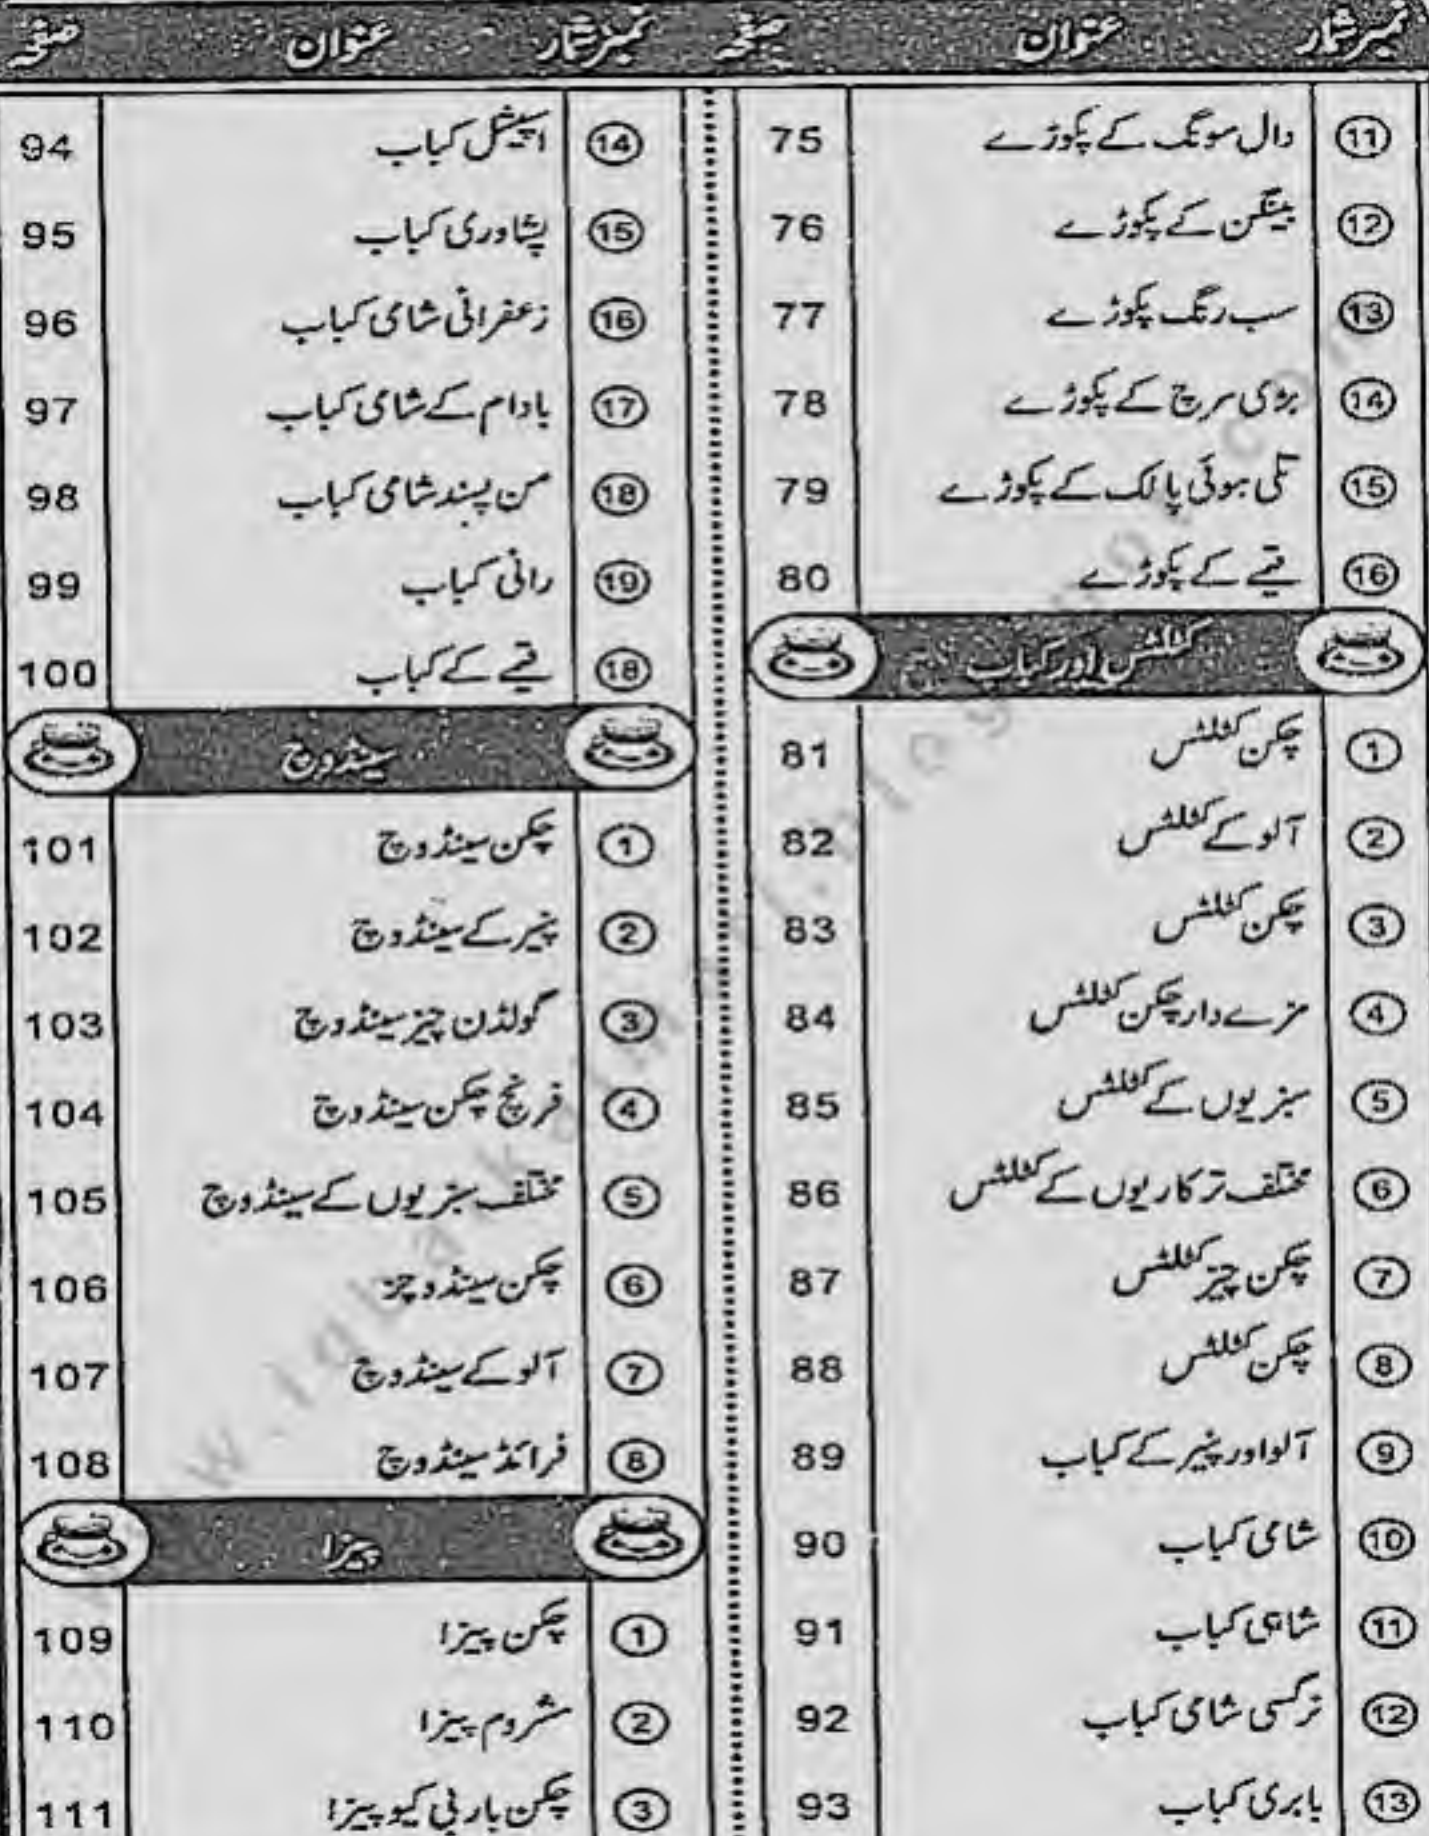 نمبر شمار عنوان صفحہ
11 دال مونگ کے پکوڑے 75
12 بینگن کے پکوڑے 76
13 سب رنگ پکوڑے 77
14 بڑی مرچ کے پکوڑے 78
15 تلی ہوئی پالک کے پکوڑے 79
16 قیمے کے پکوڑے 80
کٹلٹس اور کباب
1 چکن کٹلٹس 81
2 آلو کے کٹلٹس 82
3 چکن کٹلٹس 83
4 مزے دار چکن کٹلٹس 84
5 سبزیوں کے کٹلٹس 85
6 مختلف ترکاریوں کے کٹلٹس 86
7 چکن چیز کٹلٹس 87
8 چکن کٹلٹس 88
9 آلو اور پنیر کے کباب 89
10 شامی کباب 90
11 شاہی کباب 91
12 نرگسی شامی کباب 92
13 بابری کباب 93
نمبر شمار عنوان صفحہ
14 اسپیشل کباب 94
15 پشاوری کباب 95
16 زعفرانی شامی کباب 96
17 بادام کے شامی کباب 97
18 من پسند شامی کباب 98
19 رانی کباب 99
18 قیمے کے کباب 100
سینڈوچ
1 چکن سینڈوچ 101
2 پنیر کے سینڈوچ 102
3 گولڈن چیز سینڈوچ 103
4 فرنچ چکن سینڈوچ 104
5 مختلف سبزیوں کے سینڈوچ 105
6 چکن سینڈوچز 106
7 آلو کے سینڈوچ 107
8 فرائڈ سینڈوچ 108
پیزا
1 چکن پیزا 109
2 مشروم پیزا 110
3 چکن باربی کیو پیزا 111